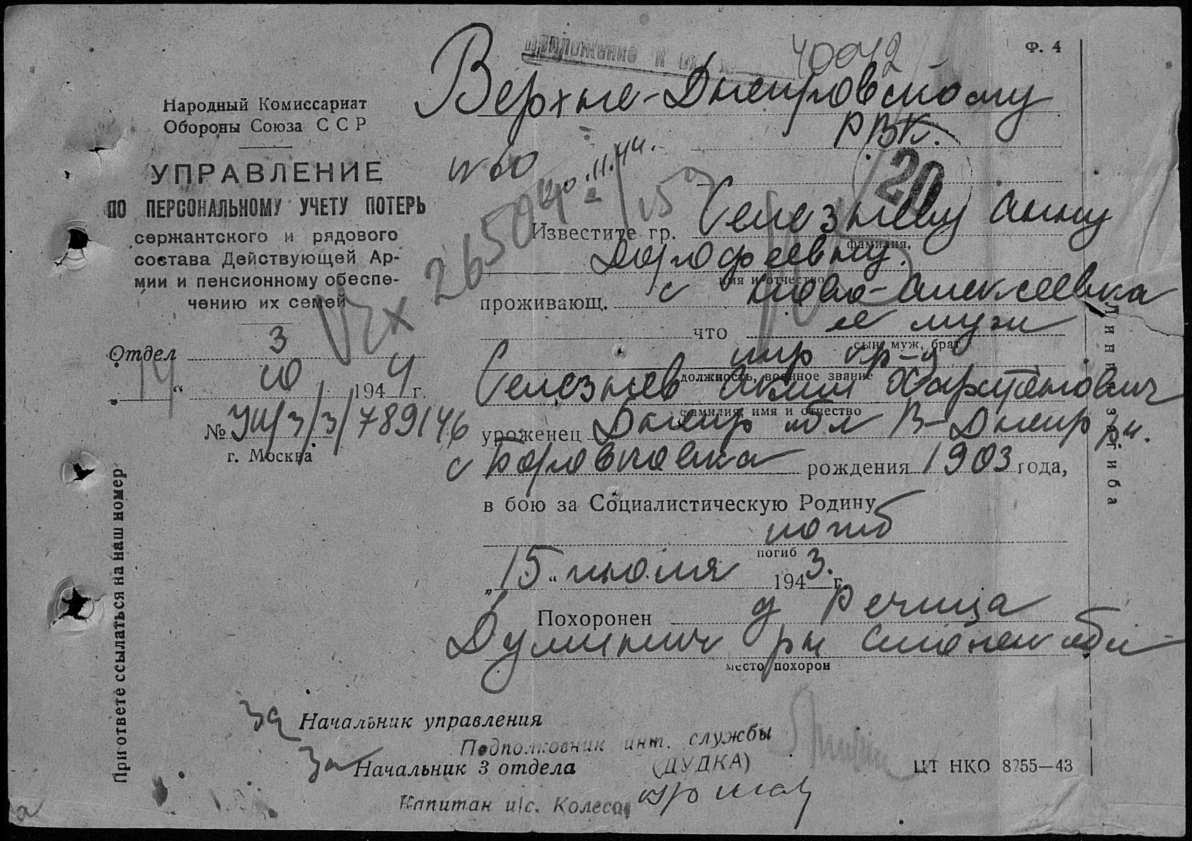 Ф. 4
Приложение к
40042
Верхне-Днепровскому
РВК.
Народный Комиссариат
Обороны Союза ССР
УПРАВЛЕНИЕ
ПО ПЕРСОНАЛЬНОМУ УЧЕТУ ПОТЕРЬ
сержантского и рядового
состава Действующей Ар-
мии и пенсионному обеспе-
чению их семей
Отдел 3
14 " 10 1944 г.
№ УП/3/3/789146
г. Москва
Вх 26504
20
Известите гр. Селезневу Анну
фамилия,
Дорофеевну.
имя и отчество
проживающ. с Ново-Алексеевка
что ее муж
сын, муж, брат
стр. кр-ц
должность, военное звание
Селезнев Аким Харитонович
фамилия, имя и отчество
уроженец Днепр обл В-Днепр рн.
с Бородаевка рождения 1903 года,
в бою за Социалистическую Родину
погиб
погиб
„15" июля 1943. г.
Похоронен д Речица
Думинич рн Смолен обл
место похорон
За Начальник управления
Подполковник инт. службы
(ДУДКА)
За Начальник 3 отдела
Капитан и/с. Колесов
ЦТ НКО 8255—43
При ответе ссылаться на наш номер
Линия загиба